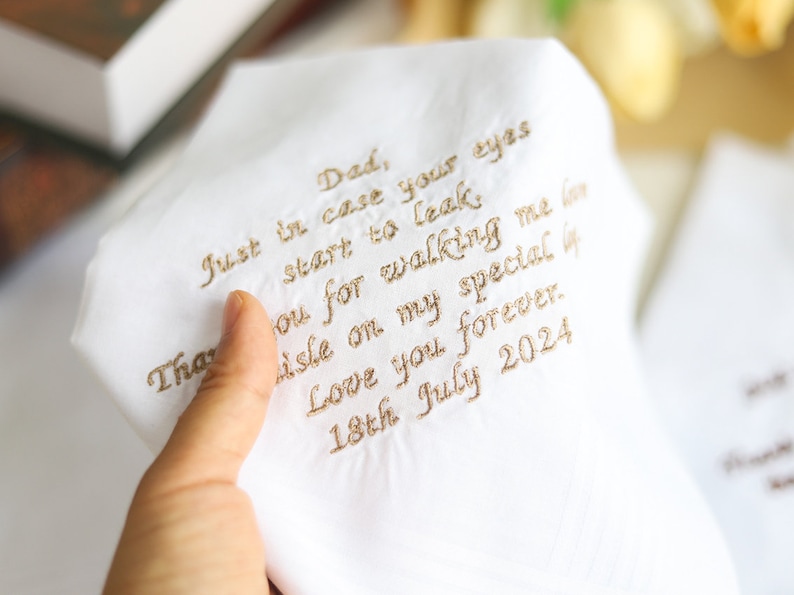 Dad,
Just in case your eyes
start to leak.
you for walking me
aisle on my special
Love you forever.
18th July 2024